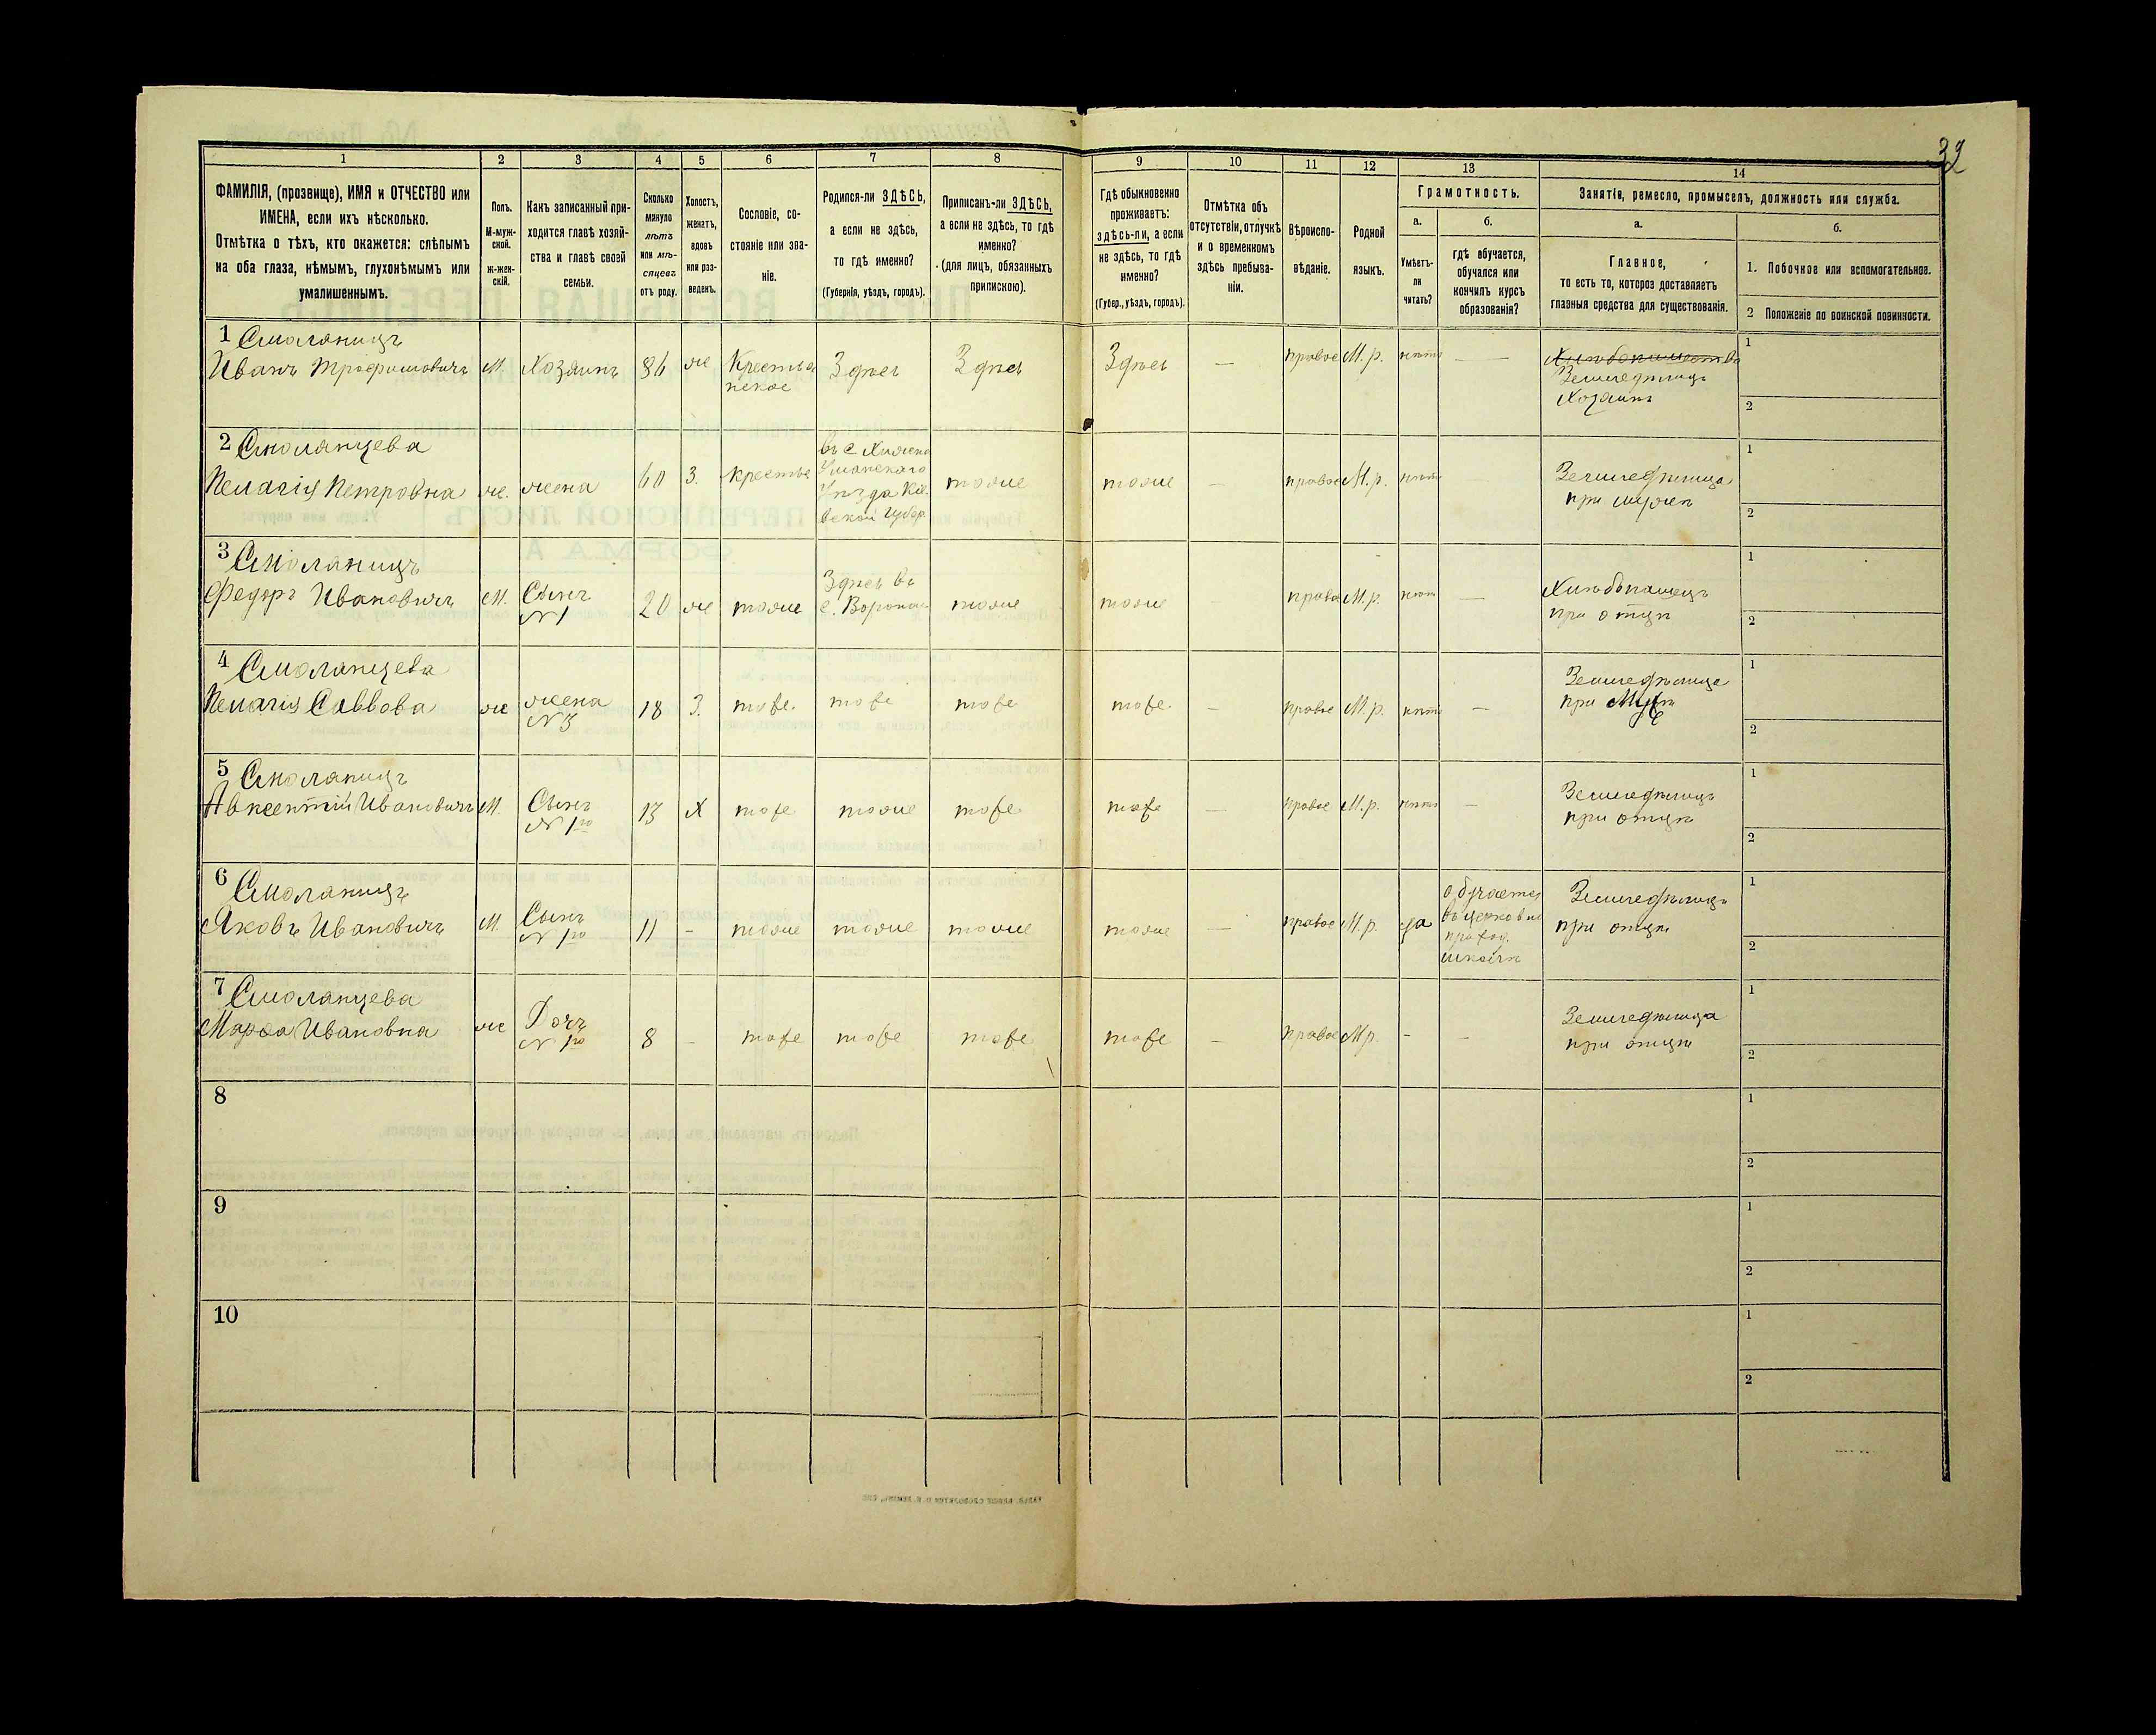 32
1 2 3 4 5 6 7 8 9 10 11 12 13 14
ФАМИЛІЯ, (прозвище), ИМЯ и ОТЧЕСТВО или
ИМЕНА, если ихъ нѣсколько.
Отмѣтка о тѣхъ, кто окажется: слѣпымъ
на оба глаза, нѣмымъ, глухонѣмымъ или
умалишеннымъ.
Полъ.
М-муж-
ской.
ж-жен-
скій.
Какъ записанный при-
ходится главѣ хозяй-
ства и главѣ своей
семьи.
Сколько
минуло
лѣтъ
или мѣ-
сяцевъ
отъ роду.
Холостъ,
женатъ,
вдовъ
или раз-
веденъ.
Сословіе, со-
стояніе или зва-
ніе.
Родился-ли ЗДѢСЬ,
а если не здѣсь,
то гдѣ именно?
(Губернія, уѣздъ, городъ).
Приписанъ-ли ЗДѢСЬ,
а если не здѣсь, то гдѣ
именно?
(для лицъ, обязанныхъ
припискою).
Гдѣ обыкновенно
проживаетъ:
здѣсь-ли, а если
не здѣсь, то гдѣ
именно?
(Губер., уѣздъ, городъ).
Отмѣтка объ
отсутствіи, отлучкѣ
и о временномъ
здѣсь пребыва-
ніи.
Вѣроиспо-
вѣданіе.
Родной
языкъ.
Грамотность.
а.
Умѣетъ-
ли
читать?
б.
гдѣ обучается,
обучался или
кончилъ курсъ
образованія?
Занятія, ремесло, промыселъ, должность или служба.
а.
Главное,
то есть то, которое доставляетъ
главныя средства для существованія.
б.
1. Побочное или вспомогательное.
2 Положеніе по воинской повинности.
1 Смоляницъ
Иванъ Трофимовичъ М. Хозяинъ ж Крестья
нское Здѣсь Здѣсь Здѣсь — правос М.р. нѣтъ —
Земледѣлецъ
Хозяинъ
1
2
2 Смолянцева
Пелагія Петровна же. жена 60 З. крестье
въ с
Уманскаго
Уѣзда Кіе
вской Губер
тоже тоже — правос М.р. нѣтъ
Земледѣлица
при мужѣ
1
2
3 Смоляницъ
Федоръ Ивановичъ М. Сынъ
№ 1
20 же тоже
Здѣсь въ
с.
тоже тоже — право М.р. нѣтъ —
Хлѣбопашецъ
при отцѣ
1
2
4 Смолянцева
Пелагія Саввова же жена
№ 3
18 З. тоже тоже тоже тоже — правос М.р. нѣтъ —
Земледѣлица
при
1
2
5 Смоляницъ
Авксентій Ивановичъ М. Сынъ
№ 1го
13 Х тоже тоже тоже тоже — правос М.р. нѣтъ —
Земледѣлецъ
при отцѣ
1
2
6 Смоляницъ
Яковъ Ивановичъ М. Сынъ
№ 1го
11 - тоже тоже тоже тоже — правос М.р. да
обучается
въ церковно
приход.
школѣ
Земледѣлецъ
при отцѣ
1
2
7 Смолянцева
Марѳа Ивановна же Дочь
№ 1го
8 - тоже тоже тоже тоже — правос М.р. - -
Земледѣлица
при отцѣ
1
2
8
1
2
9
1
2
10
1
2